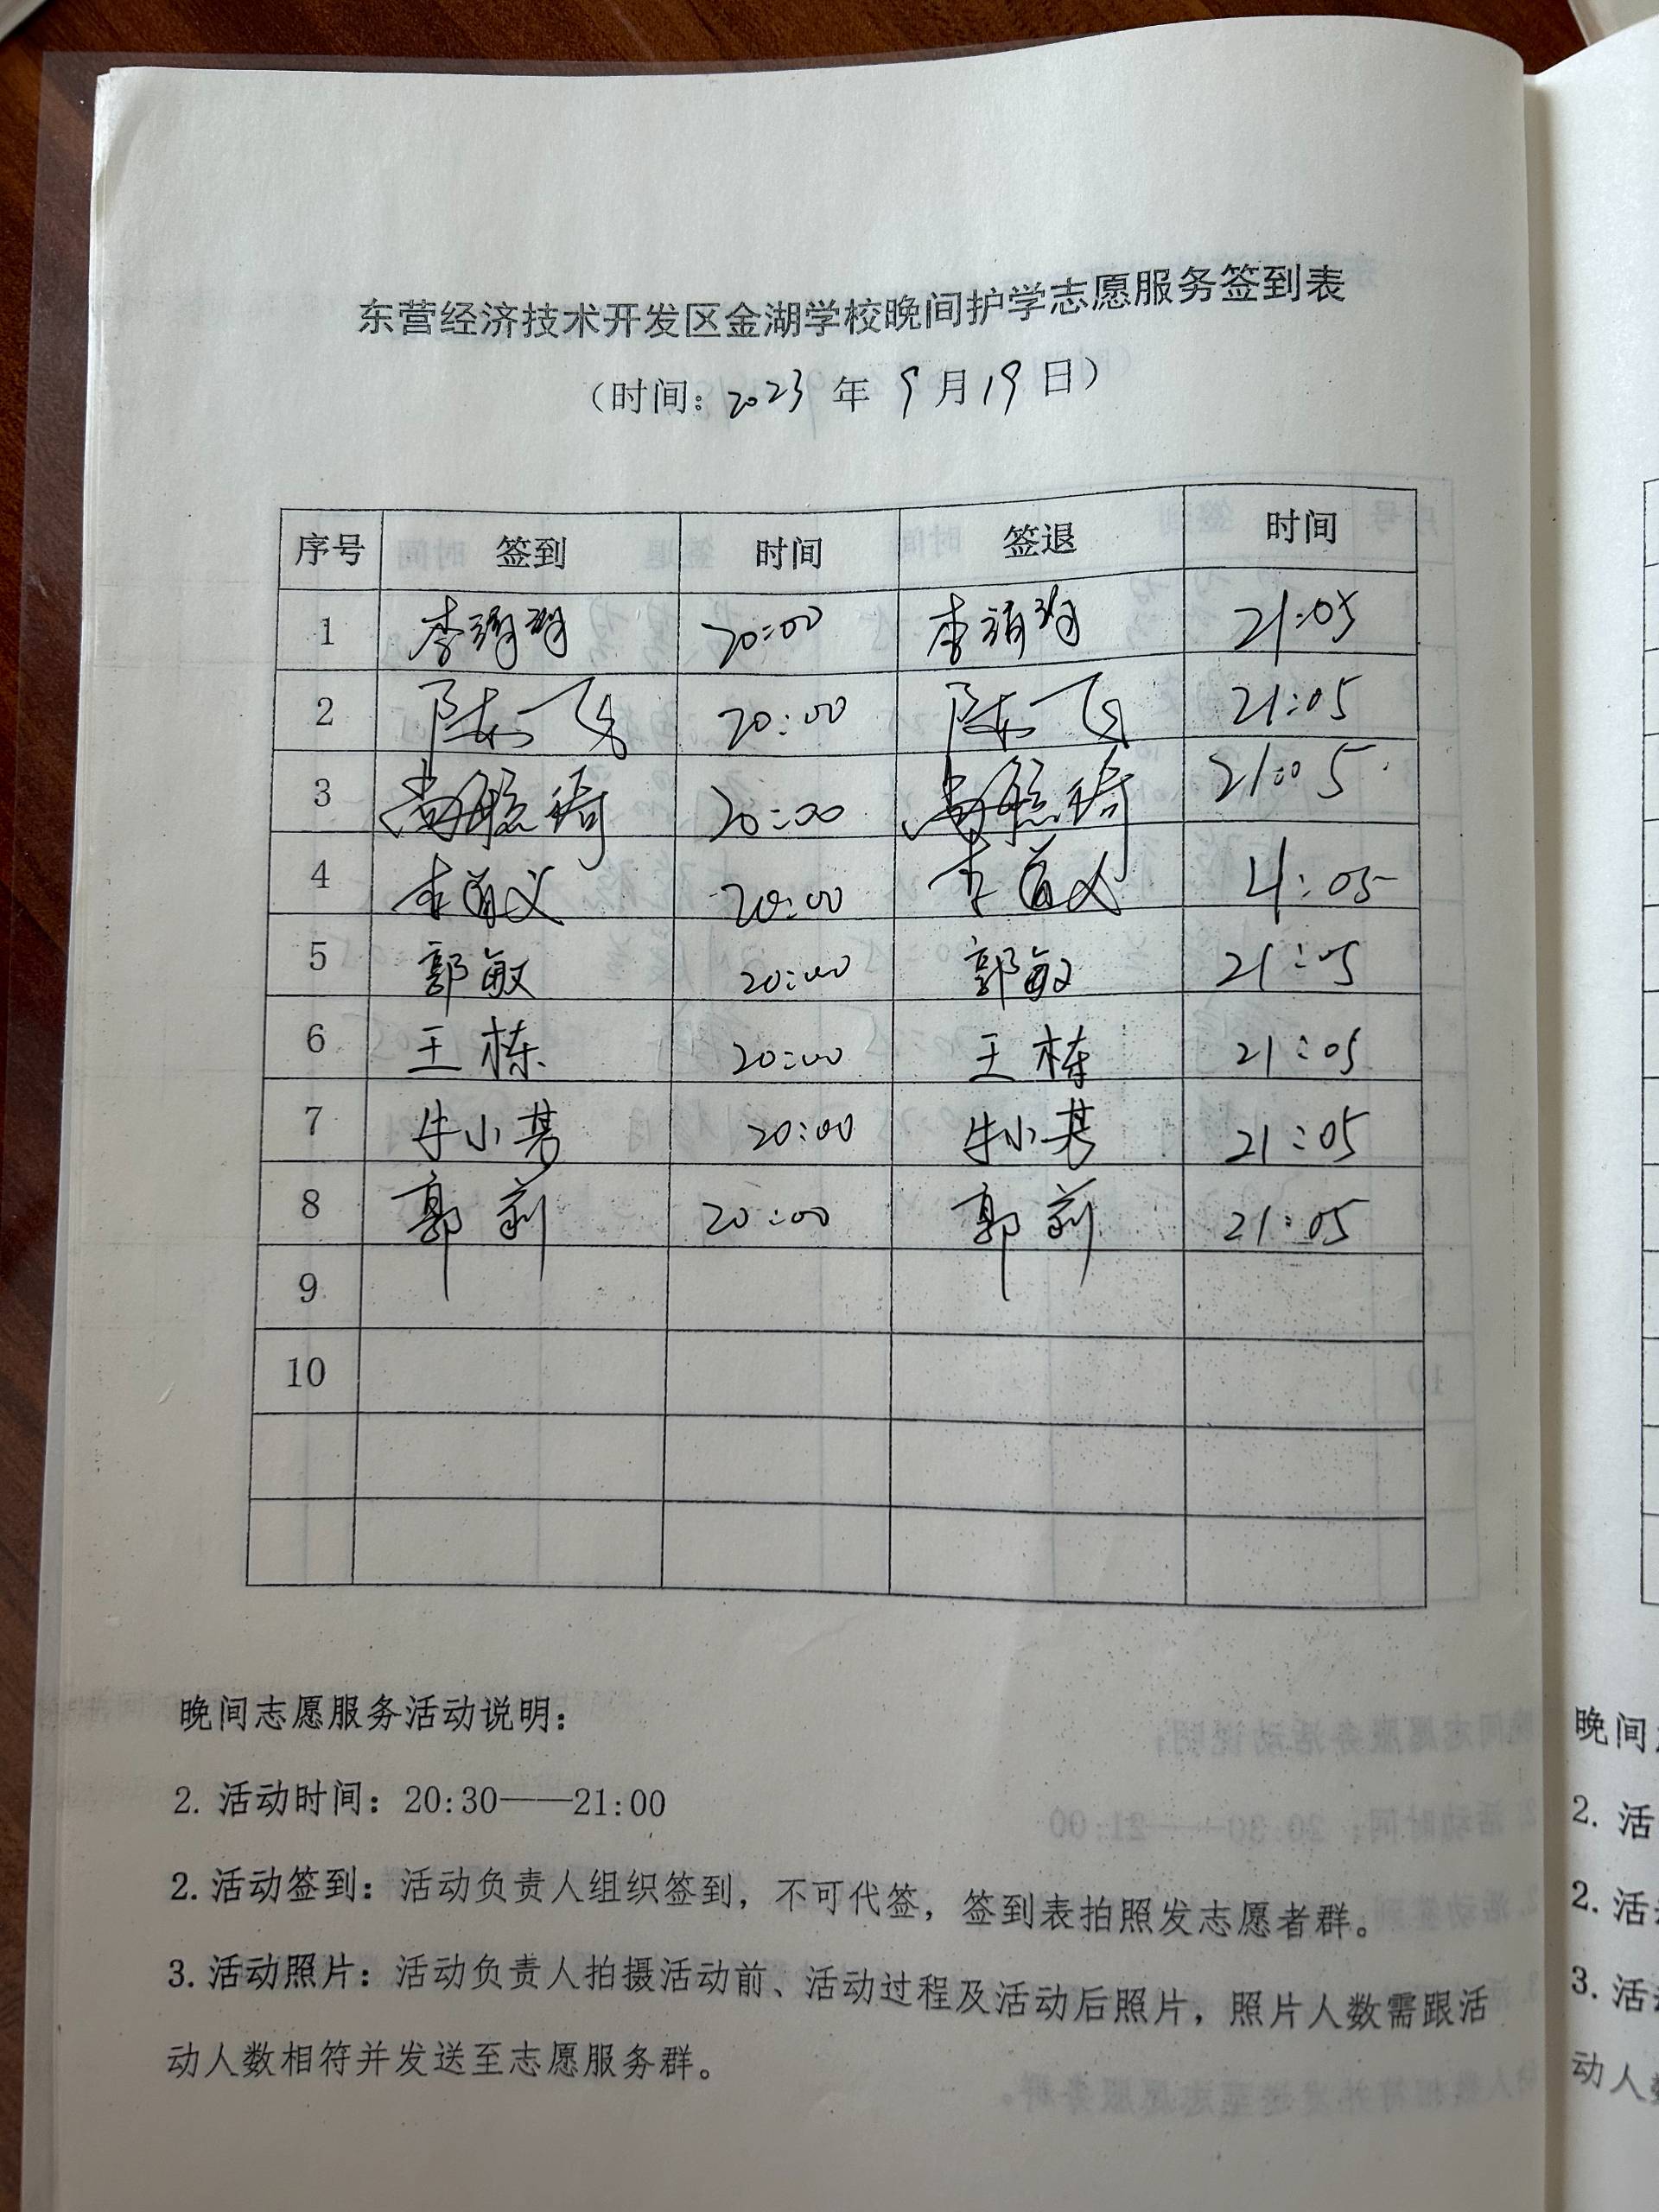 东营经济技术开发区金湖学校晚间护学志愿服务签到表
（时间：2023 年 9 月 19 日）
序号 签到 时间 签退 时间
1 李 20:00 李 21:05
2 陈飞 20:00 陈飞 21:05
3 尚 琦 20:00 尚 琦 21:05
4 李道义 20:00 李道义 21:05
5 郭敏 20:00 郭敏 21:05
6 王栋 20:00 王栋 21:05
7 牛小芳 20:00 牛小芳 21:05
8 郭莉 20:00 郭莉 21:05
9
10
晚间志愿服务活动说明：
2. 活动时间：20:30——21:00
2. 活动签到：活动负责人组织签到，不可代签，签到表拍照发志愿者群。
3. 活动照片：活动负责人拍摄活动前、活动过程及活动后照片，照片人数需跟活
动人数相符并发送至志愿服务群。
晚间
2. 活
2. 活
3. 活
动人